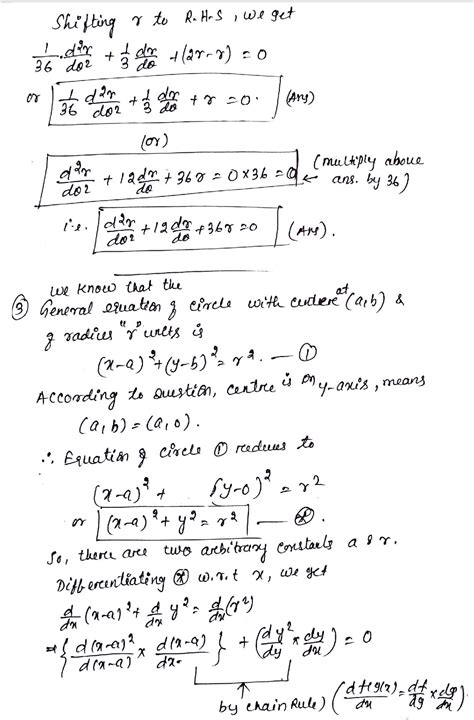 Shifting r to R.H.S, we get
1/36 . d²r/dθ² + 1/3 dr/dθ + (2r-r) = 0
or 1/36 d²r/dθ² + 1/3 dr/dθ + r = 0. (Ans)
(or)
d²r/dθ² + 12 dr/dθ + 36r = 0×36 = 0 ← (multiply above ans. by 36)
i.e. d²r/dθ² + 12 dr/dθ + 36r = 0 (Ans).
we know that the
③ General equation of circle with centre at (a,b) &
of radius "r" units is
(x-a)² + (y-b)² = r². — ①
According to question, centre is on y-axis, means
(a,b) = (a,0).
∴ Equation of circle ① reduces to
(x-a)² + (y-0)² = r²
or (x-a)² + y² = r² — ⊛.
So, there are two arbitrary constants a & r.
Differentiating ⊛ w.r.t x, we get
d/dx (x-a)² + d/dx y² = d/dx (r²)
⇒ { d(x-a)²/d(x-a) × d(x-a)/dx } + (dy²/dy × dy/dx) = 0
by chain Rule) (df(g(x))/dx = df/dg × dg/dx)